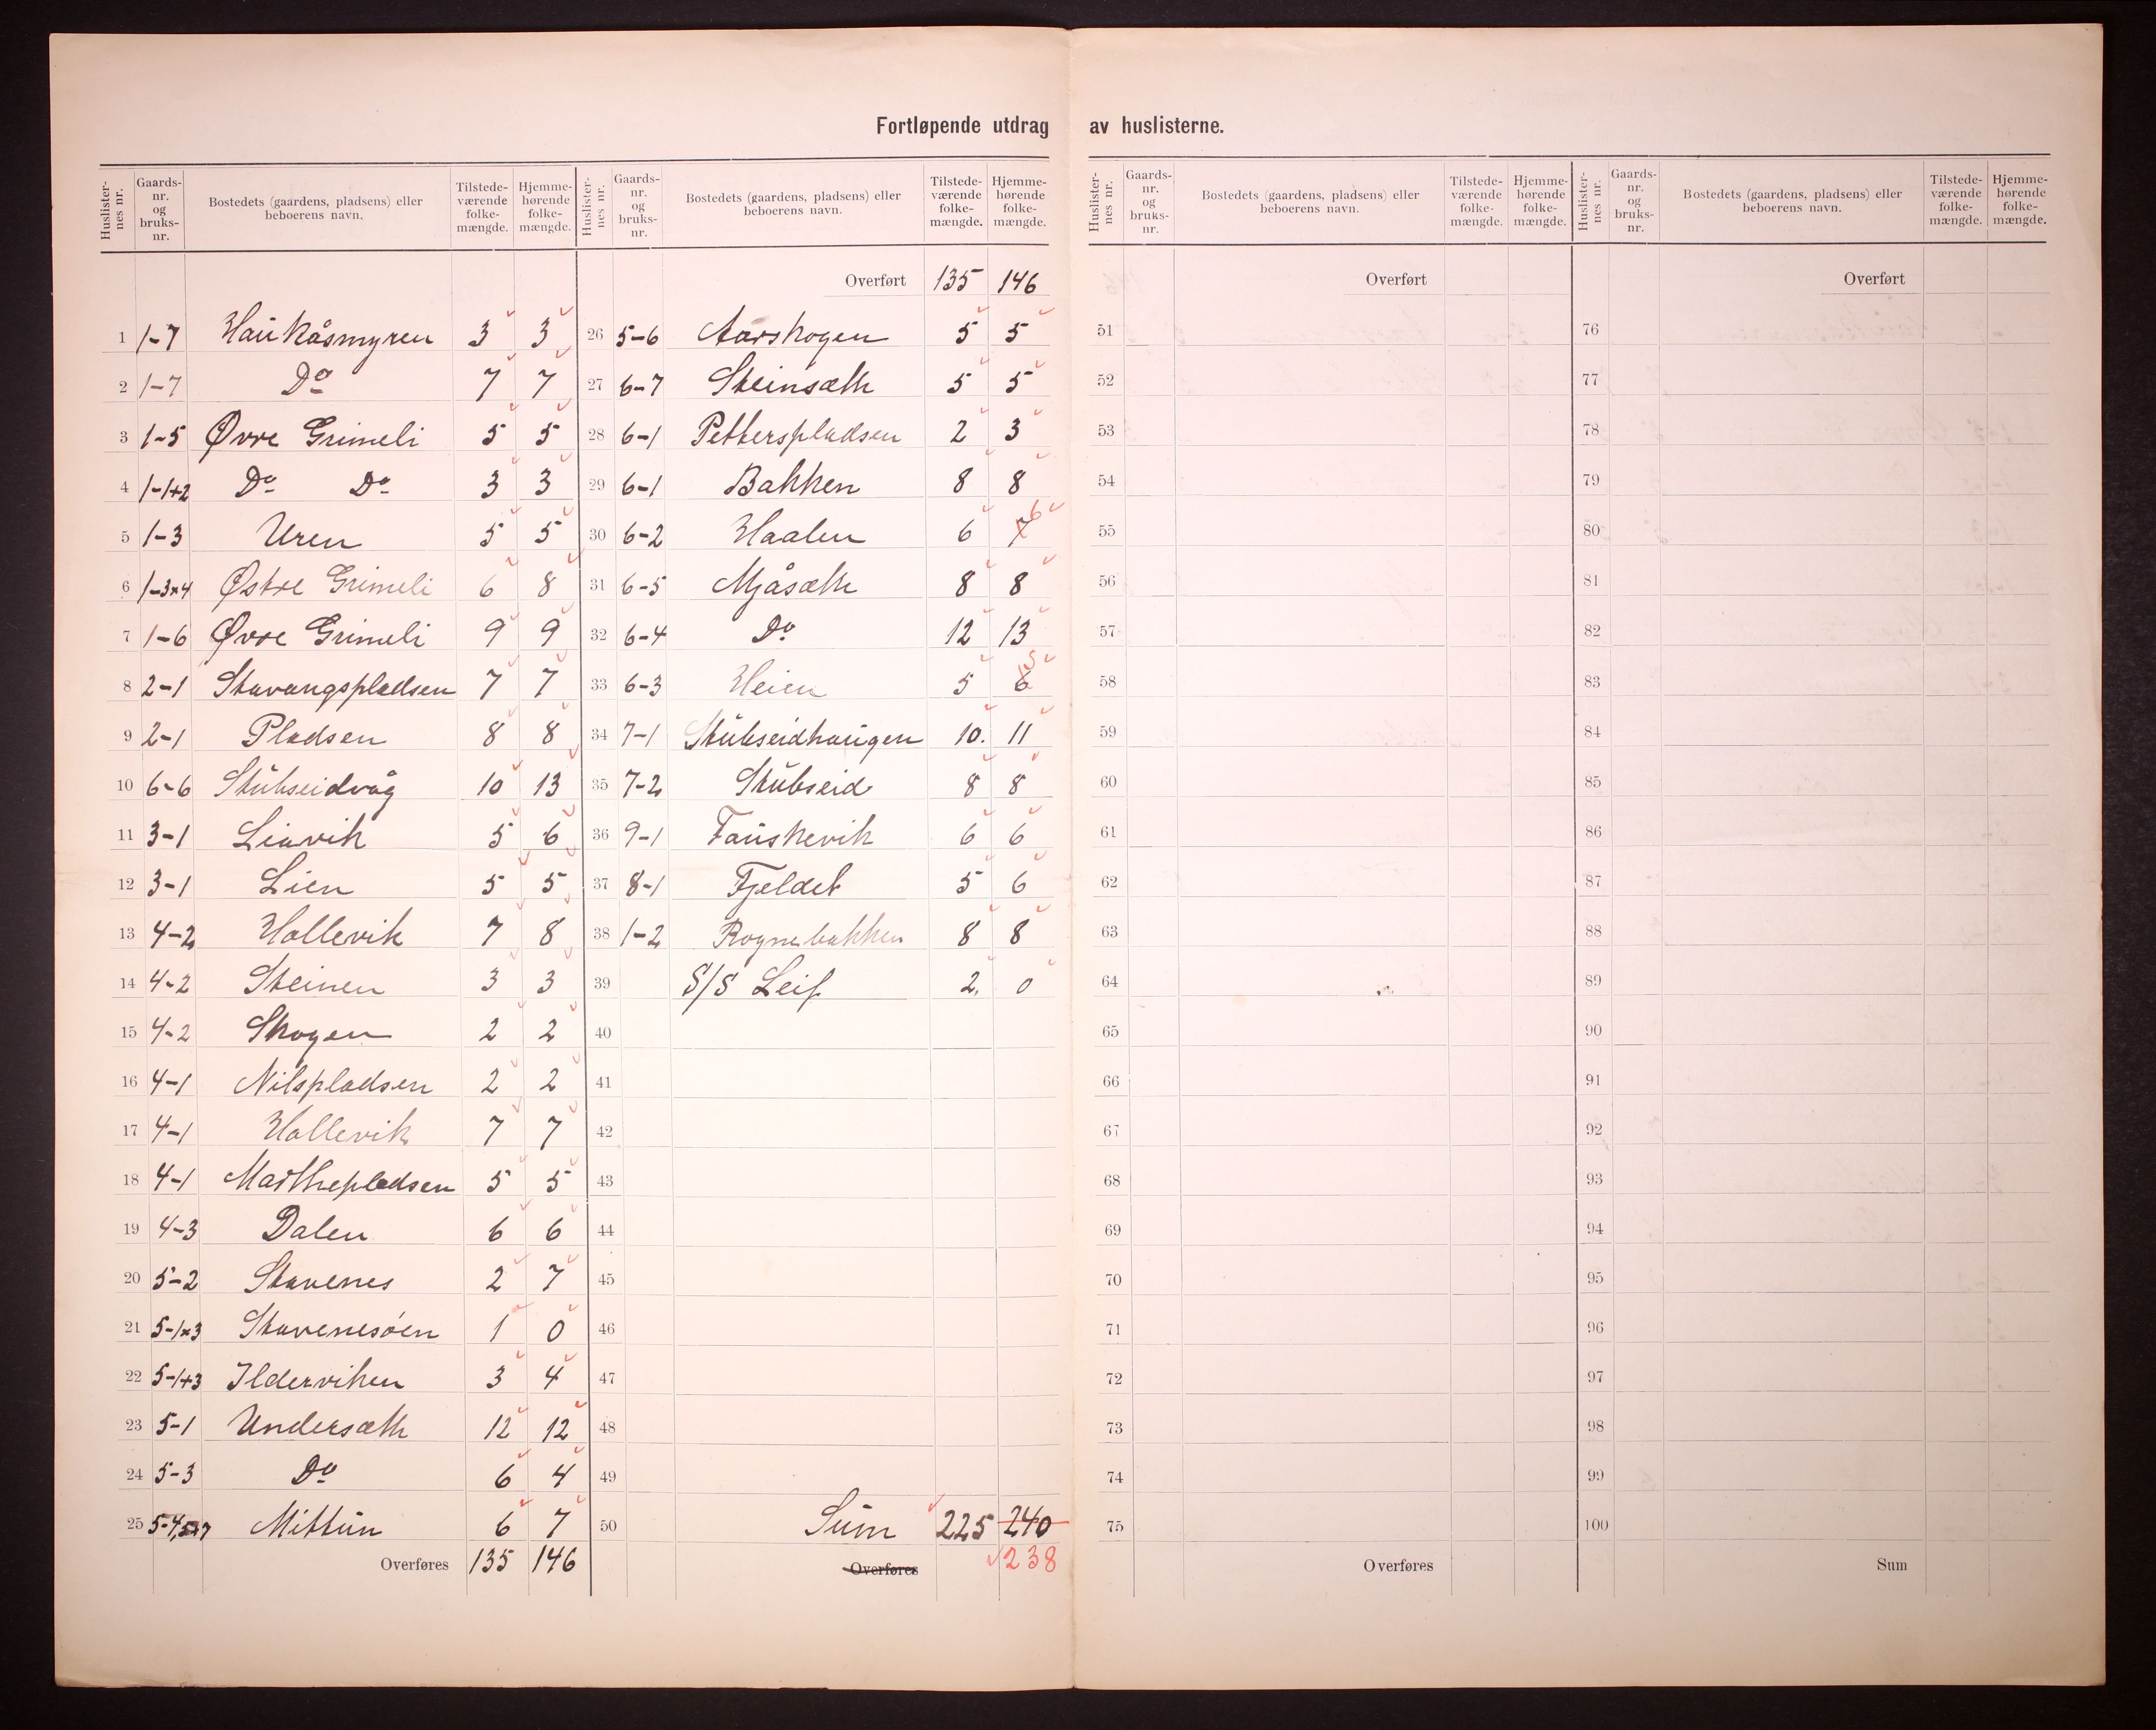 Fortløpende utdrag av huslisterne.
Huslister-nes nr. Gaards-nr. og bruks-nr. Bostedets (gaardens, pladsens) eller beboerens navn. Tilstede-værende folke-mængde. Hjemme-hørende folke-mængde.
1 1-7 Haukåsmyren 3 3
2 1-7 Do 7 7
3 1-5 Øvre Grimeli 5 5
4 1-1+2 Do Do 3 3
5 1-3 Uren 5 5
6 1-3×4 Østre Grimeli 6 8
7 1-6 Øvre Grimeli 9 9
8 2-1 Stavangspladsen 7 7
9 2-1 Pladsen 8 8
10 6-6 Stubseidvåg 10 13
11 3-1 Liavik 5 6
12 3-1 Lien 5 5
13 4-2 Hollevik 7 8
14 4-2 Steinen 3 3
15 4-2 Skogen 2 2
16 4-1 Nilspladsen 2 2
17 4-1 Hollevik 7 7
18 4-1 Marthepladsen 5 5
19 4-3 Dalen 6 6
20 5-2 Stavenes 2 7
21 5-1×3 Stavenesøen 1 0
22 5-1+3 Ilderviken 3 4
23 5-1 Undersæth 12 12
24 5-3 Do 6 4
25 5-4,5+7 Mittun 6 7
Overføres 135 146
Huslister-nes nr. Gaards-nr. og bruks-nr. Bostedets (gaardens, pladsens) eller beboerens navn. Tilstede-værende folke-mængde. Hjemme-hørende folke-mængde.
Overført 135 146
26 5-6 Aarskogen 5 5
27 6-7 Steinsæth 5 5
28 6-1 Petterspladsen 2 3
29 6-1 Bakken 8 8
30 6-2 Haalen 6 7 6
31 6-5 Mjåsæth 8 8
32 6-4 Do 12 13
33 6-3 Heien 5 6 5
34 7-1 Stubseidhaugen 10. 11
35 7-2 Stubseid 8 8
36 9-1 Fauskevik 6 6
37 8-1 Fjeldet 5 6
38 1-2 Rognebakken 8 8
39 S/S Leif 2. 0
40
41
42
43
44
45
46
47
48
49
50 Sum 225 240
Overføres 238
Huslister-nes nr. Gaards-nr. og bruks-nr. Bostedets (gaardens, pladsens) eller beboerens navn. Tilstede-værende folke-mængde. Hjemme-hørende folke-mængde.
Overført
51
52
53
54
55
56
57
58
59
60
61
62
63
64
65
66
67
68
69
70
71
72
73
74
75
Overføres
Huslister-nes nr. Gaards-nr. og bruks-nr. Bostedets (gaardens, pladsens) eller beboerens navn. Tilstede-værende folke-mængde. Hjemme-hørende folke-mængde.
Overført
76
77
78
79
80
81
82
83
84
85
86
87
88
89
90
91
92
93
94
95
96
97
98
99
100
Sum